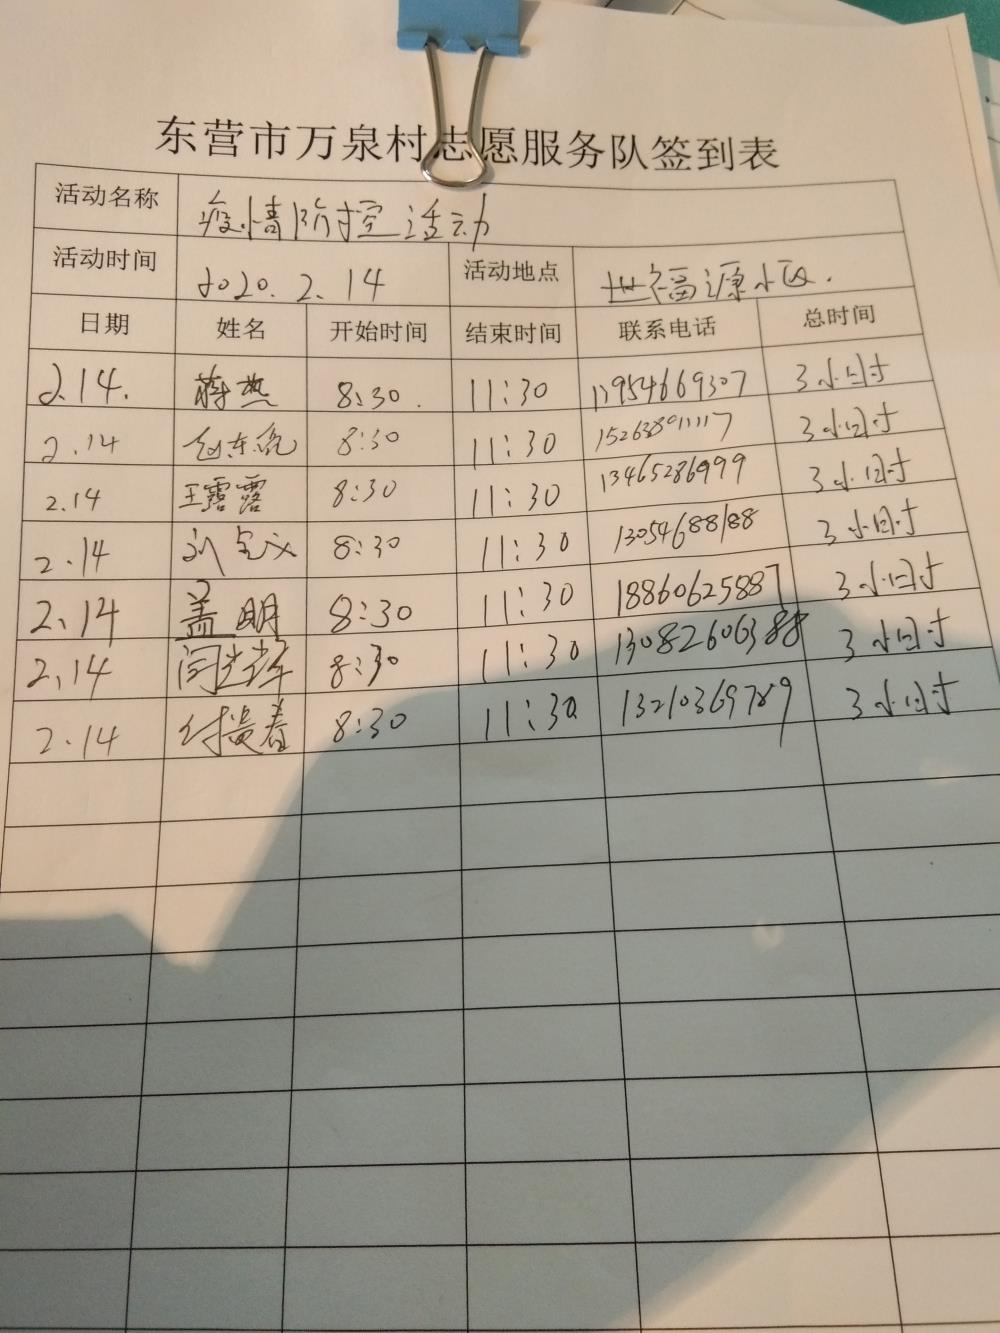 东营市万泉村志愿服务队签到表
活动名称 疫情防控活动
活动时间 2020.2.14 活动地点 世福源小区.
日期 姓名 开始时间 结束时间 联系电话 总时间
2.14. 8:30. 11:30 13954669307 3小时
2.14 8:30 11:30 15263891117 3小时
2.14 王露露 8:30 11:30 13465286999 3小时
2.14 8:30 11:30 13054688188 3小时
2.14 盖明 8:30 11:30 18860625887 3小时
2.14 8:30 11:30 13082606388 3小时
2.14 付贵春 8:30 11:30 13210369789 3小时